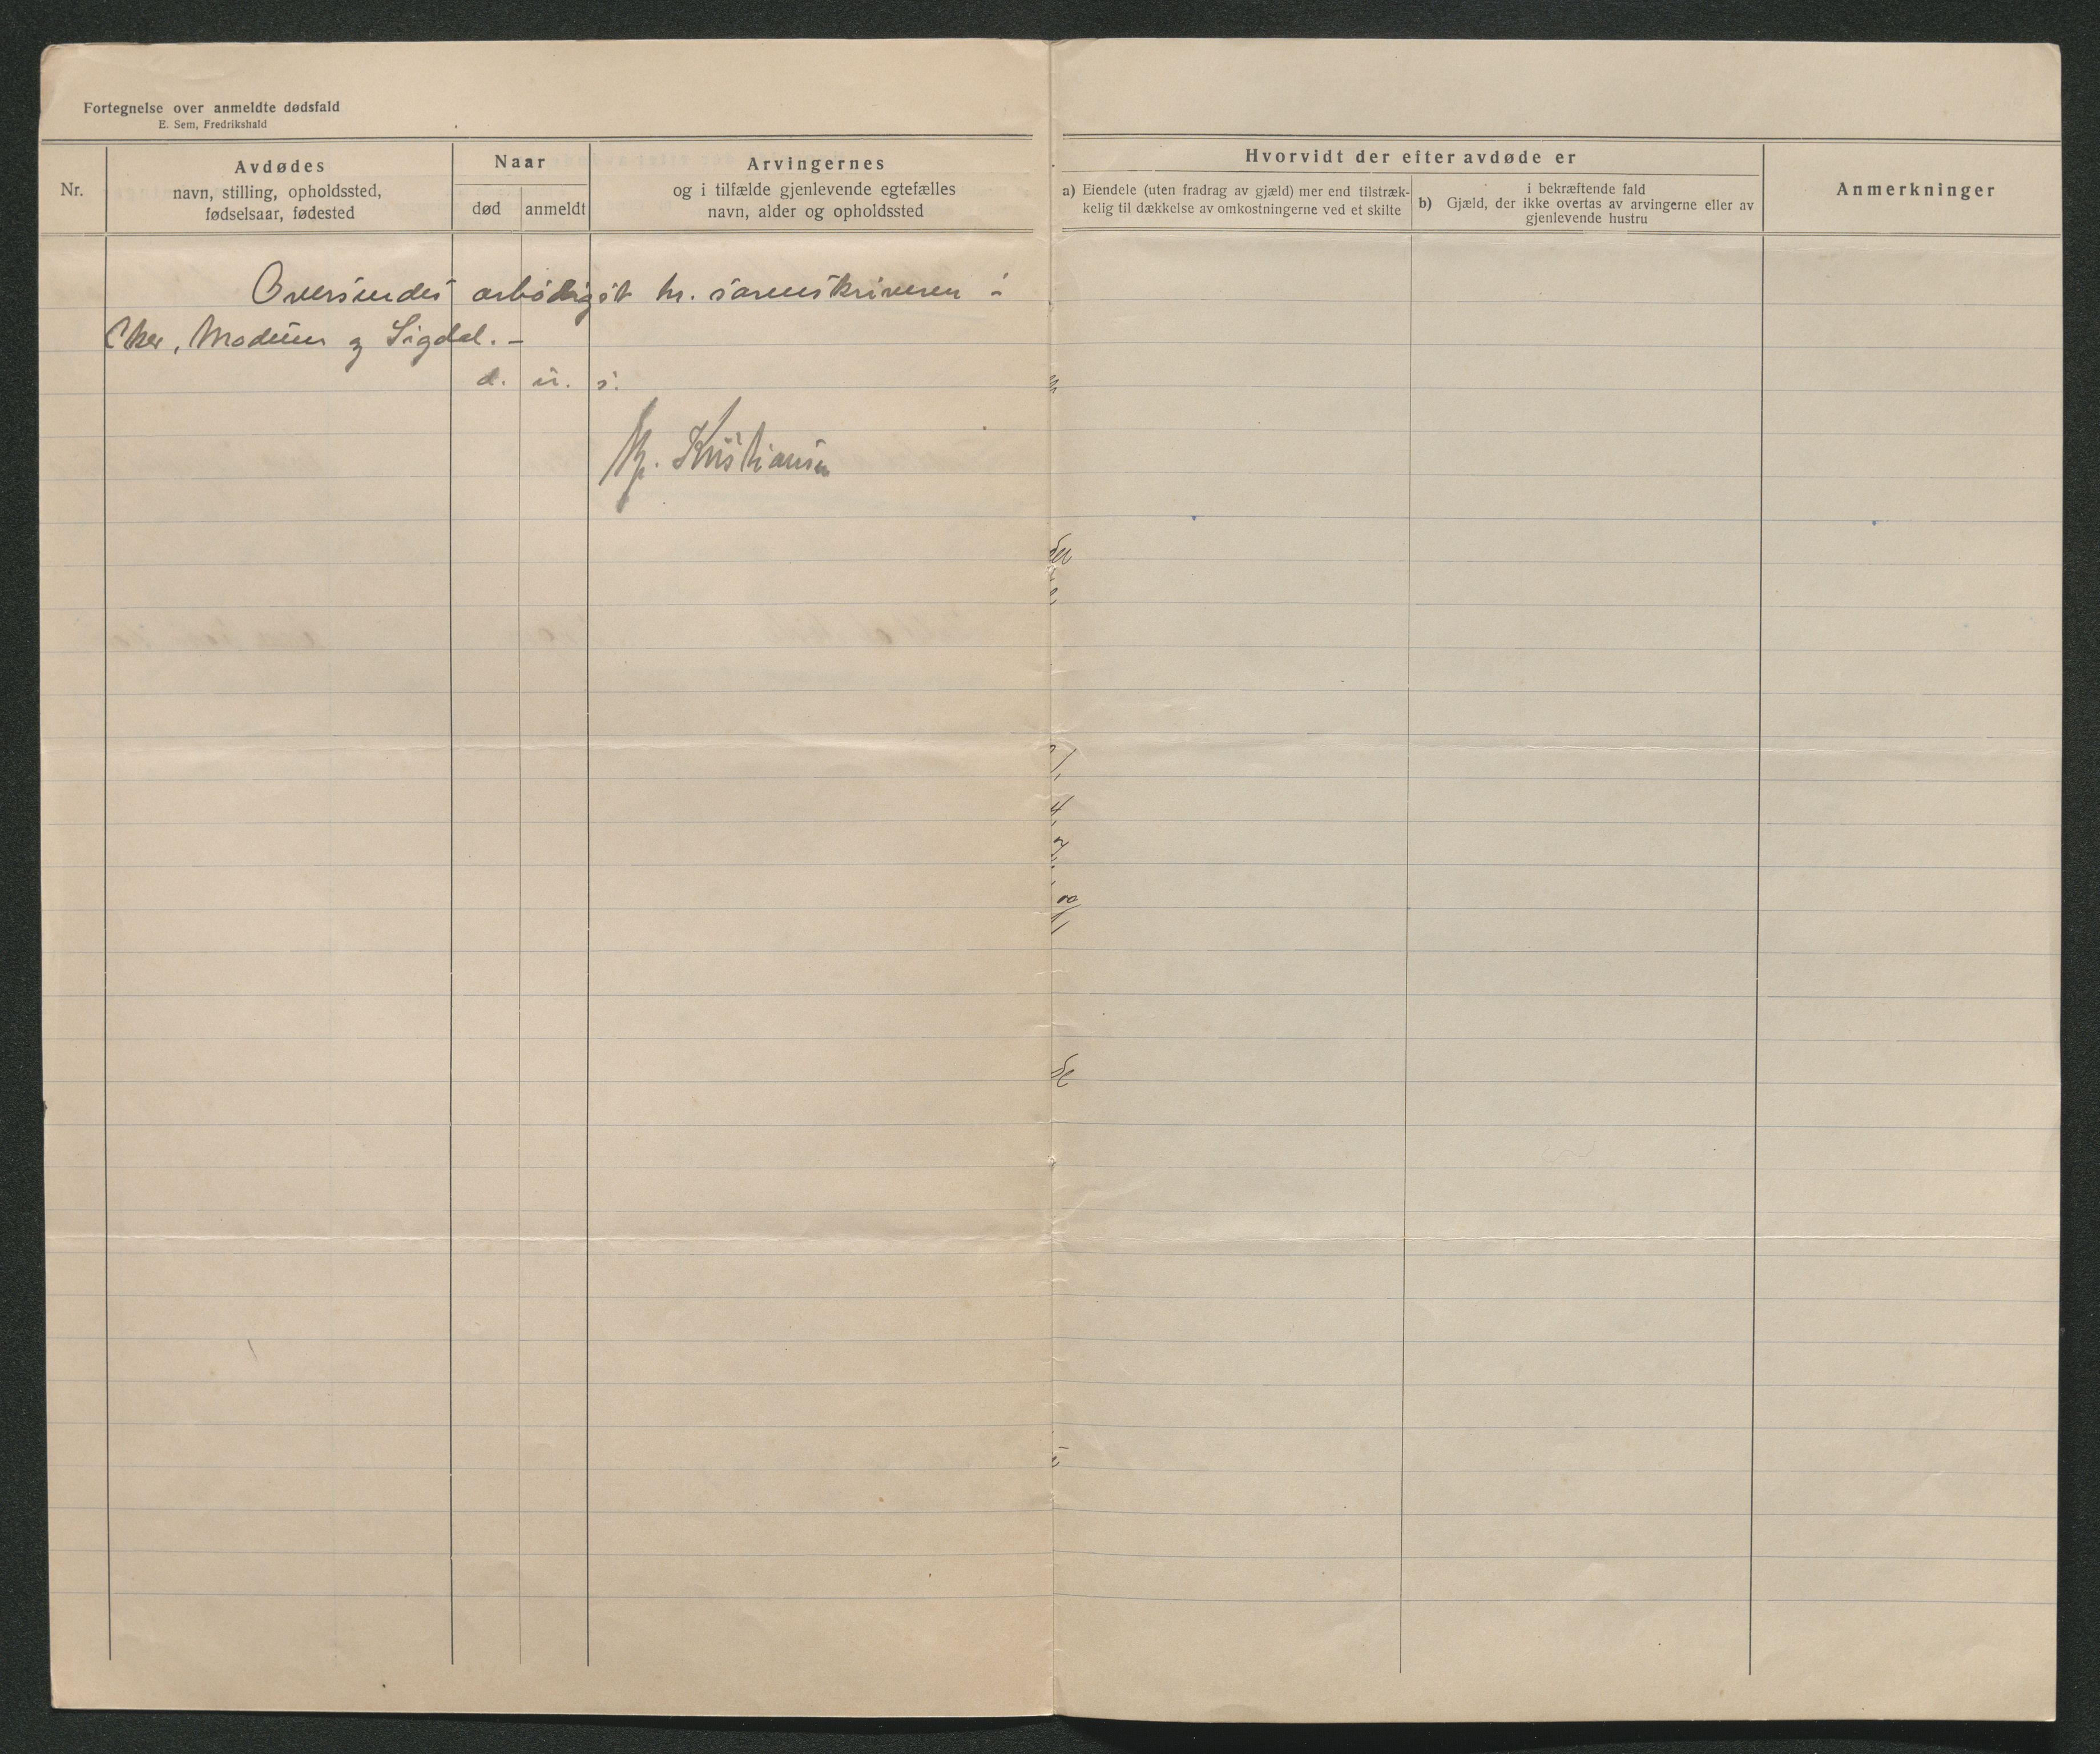 Fortegnelse over anmeldte dødsfald
E. Sem, Fredrikshald
Nr.
Avdødes
navn, stilling, opholdssted,
fødselsaar, fødested
Naar
død
anmeldt
Arvingernes
og i tilfælde gjenlevende egtefælles
navn, alder og opholdssted
Hvorvidt der efter avdøde er
a) Eiendele (uten fradrag av gjæld) mer end tilstræk-
kelig til dækkelse av omkostningerne ved et skilte
i bekræftende fald
b) Gjæld, der ikke overtas av arvingerne eller av
gjenlevende hustru
Anmerkninger
Oversendes ærbødigst hr. sorenskriveren i
Eker, Modum og Sigdal. -
d. u. s.
Kristiansen